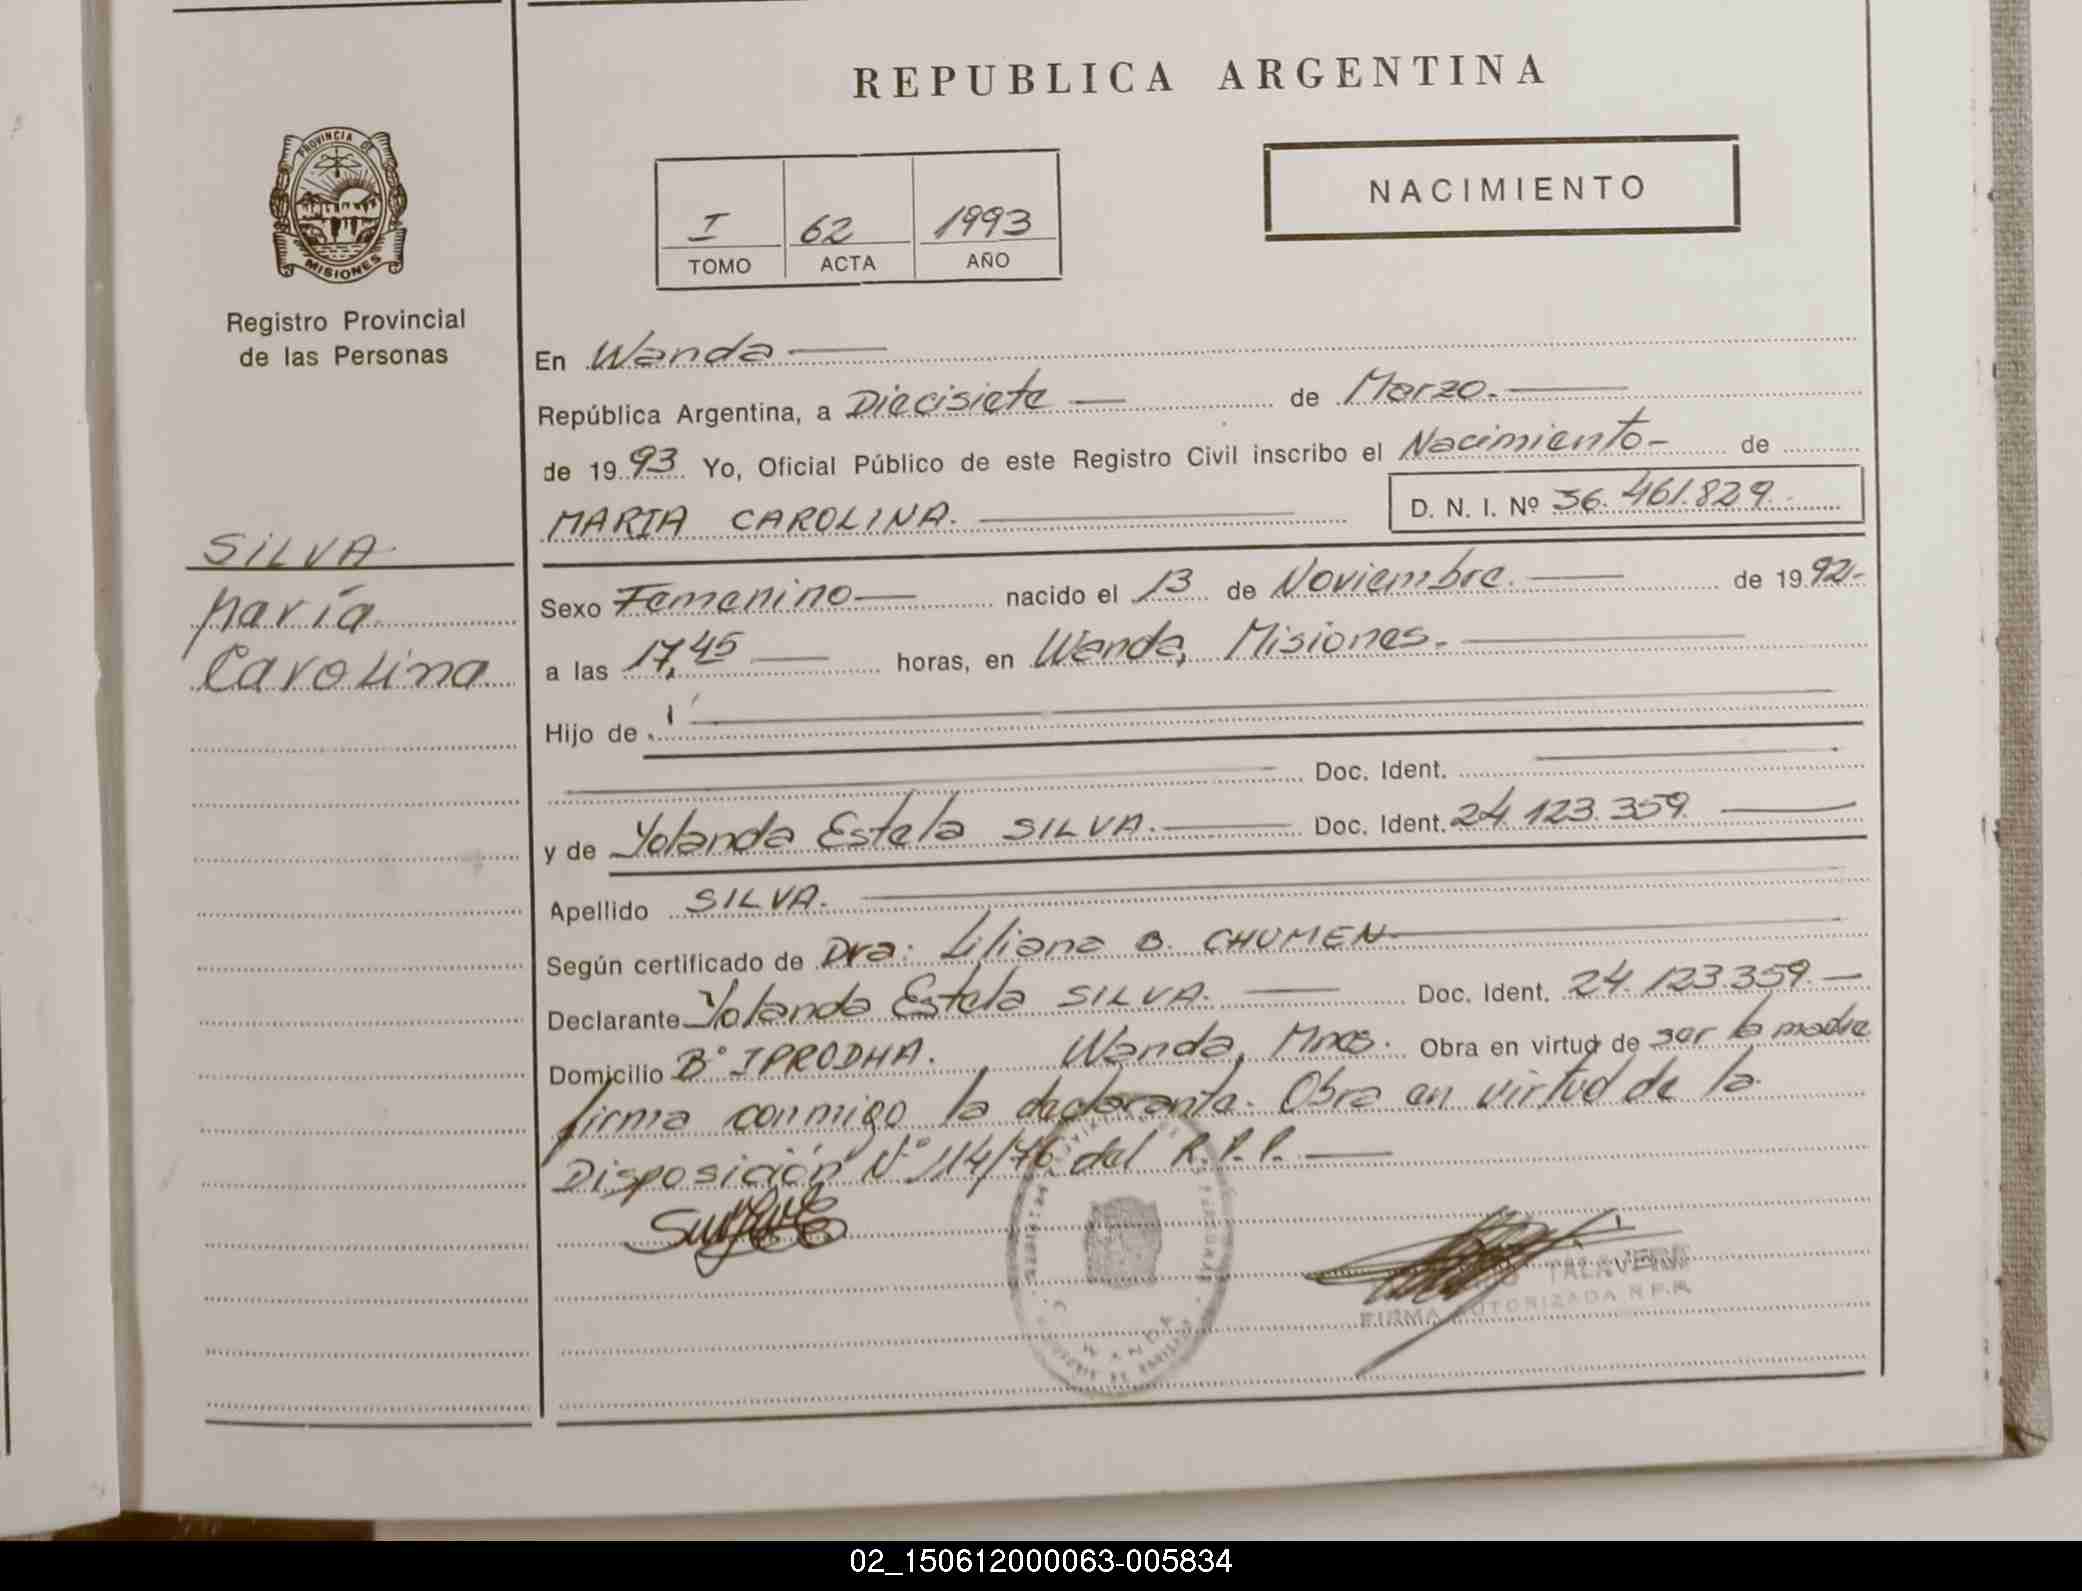 REPUBLICA ARGENTINA
PROVINCIA DE
MISIONES
Registro Provincial
de las Personas
I 62 1993
TOMO ACTA AÑO
NACIMIENTO
SILVA
María
Carolina
En Wanda
República Argentina, a Diecisiete de Marzo.
de 1993 Yo, Oficial Público de este Registro Civil inscribo el Nacimiento- de
MARIA CAROLINA. D. N. I. Nº 36.461.829.-
Sexo Femenino nacido el 13 de Noviembre. de 1992.-
a las 17,45 horas, en Wanda, Misiones.-
Hijo de
Doc. Ident.
y de Yolanda Estela SILVA. Doc. Ident. 24.123.359.
Apellido SILVA.
Según certificado de Dra. Liliana B. CHUMEN
Declarante Yolanda Estela SILVA. Doc. Ident. 24.123.359.-
Domicilio Bº IPRODHA. Wanda, Mnes. Obra en virtud de ser la madre
firma conmigo la declarante. Obra en virtud de la
Disposición Nº 114/76 del R.P.P.
TALAVERA
FIRMA AUTORIZADA R.P.P.
WANDA
02_150612000063-005834